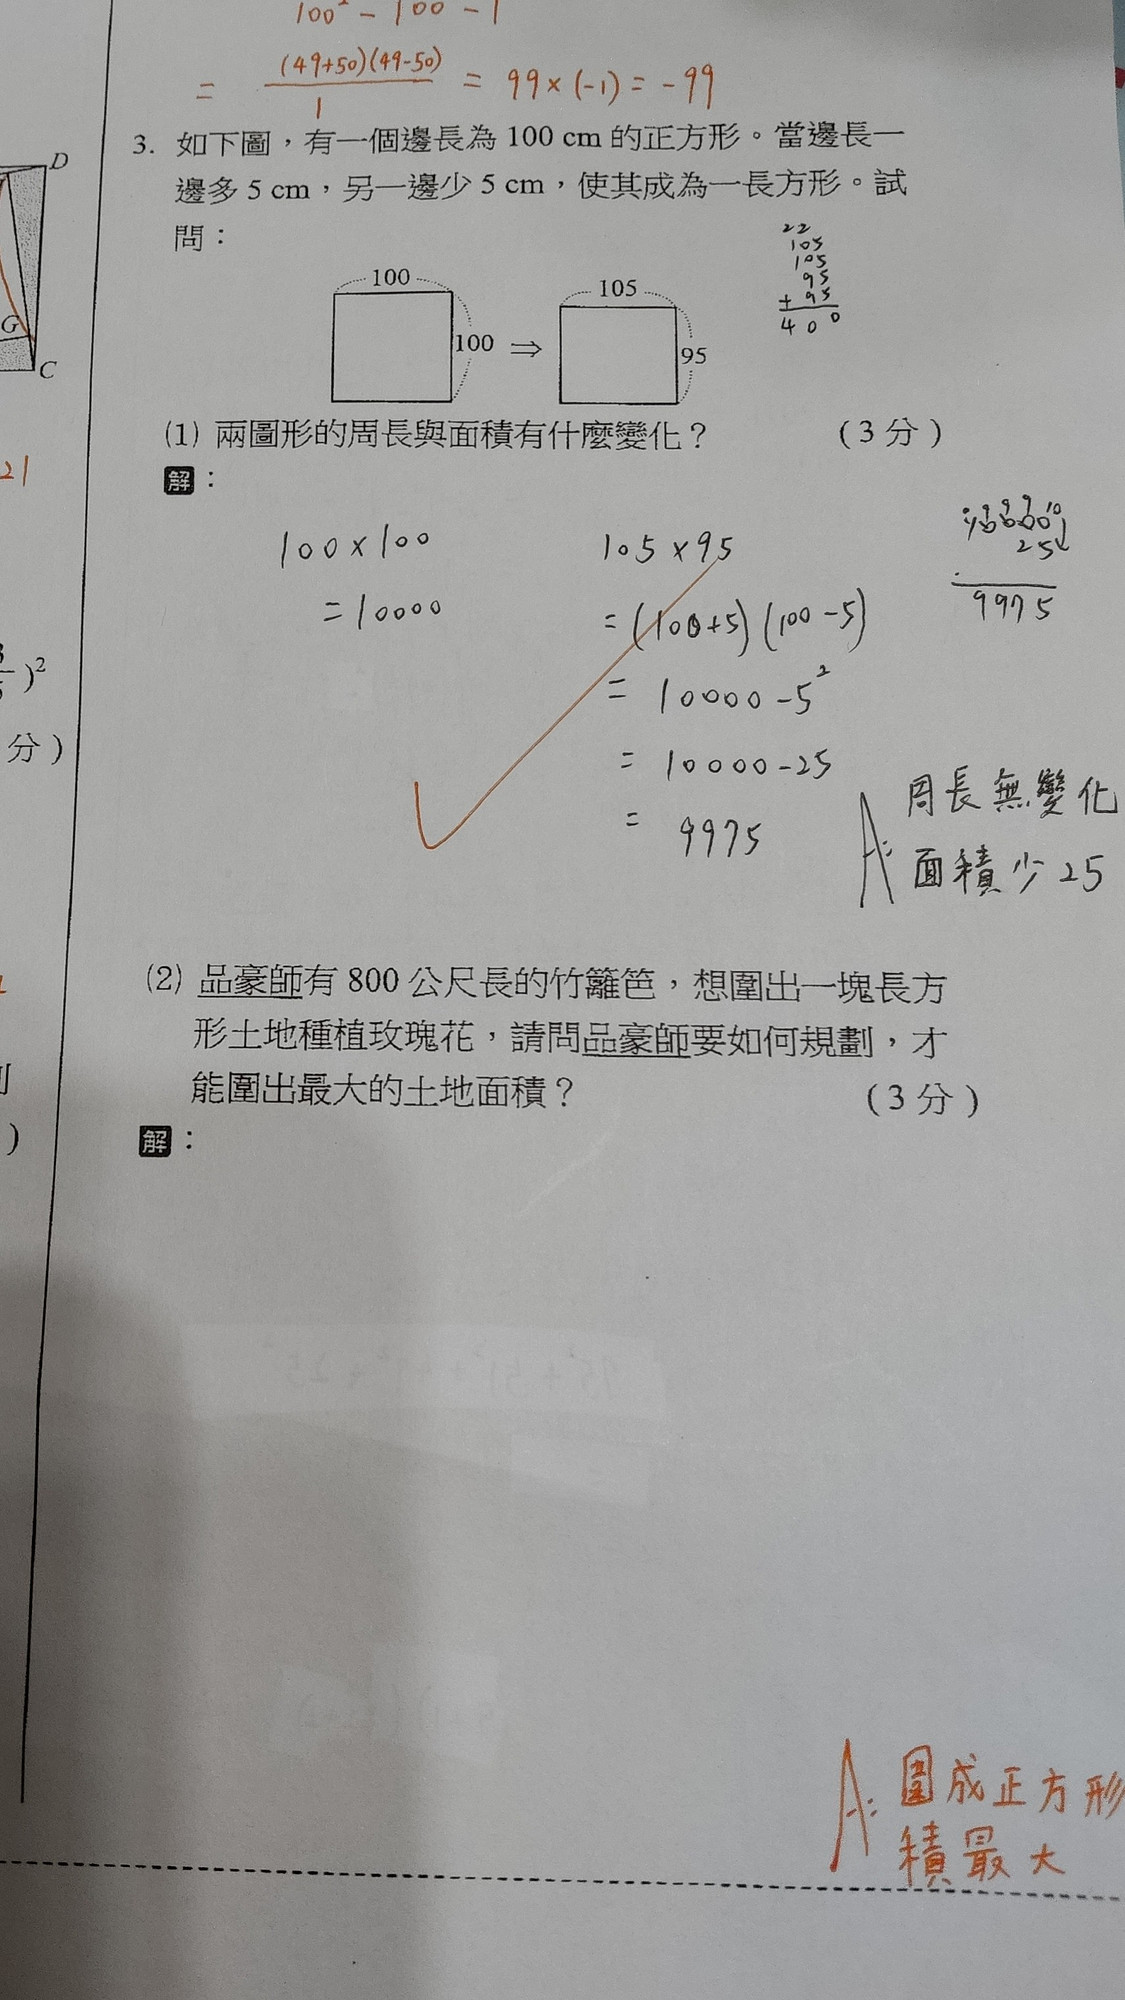 100² - 100 - 1
= (49+50)(49-50) / 1 = 99×(-1) = -99
3. 如下圖，有一個邊長為 100 cm 的正方形。當邊長一
邊多 5 cm，另一邊少 5 cm，使其成為一長方形。試
問：
22
105
105
95
+ 95
400
100
100
⇒
105
95
D
G
C
(1) 兩圖形的周長與面積有什麼變化？ （3 分）
解：
21
100×100
= 10000
105×95
= (100+5)(100-5)
= 10000-5²
= 10000-25
= 9975
25
9975
)²
分）
A: 周長無變化
面積少25
(2) 品豪師有 800 公尺長的竹籬笆，想圍出一塊長方
形土地種植玫瑰花，請問品豪師要如何規劃，才
能圍出最大的土地面積？ （3 分）
)
解：
A: 圍成正方形
積最大